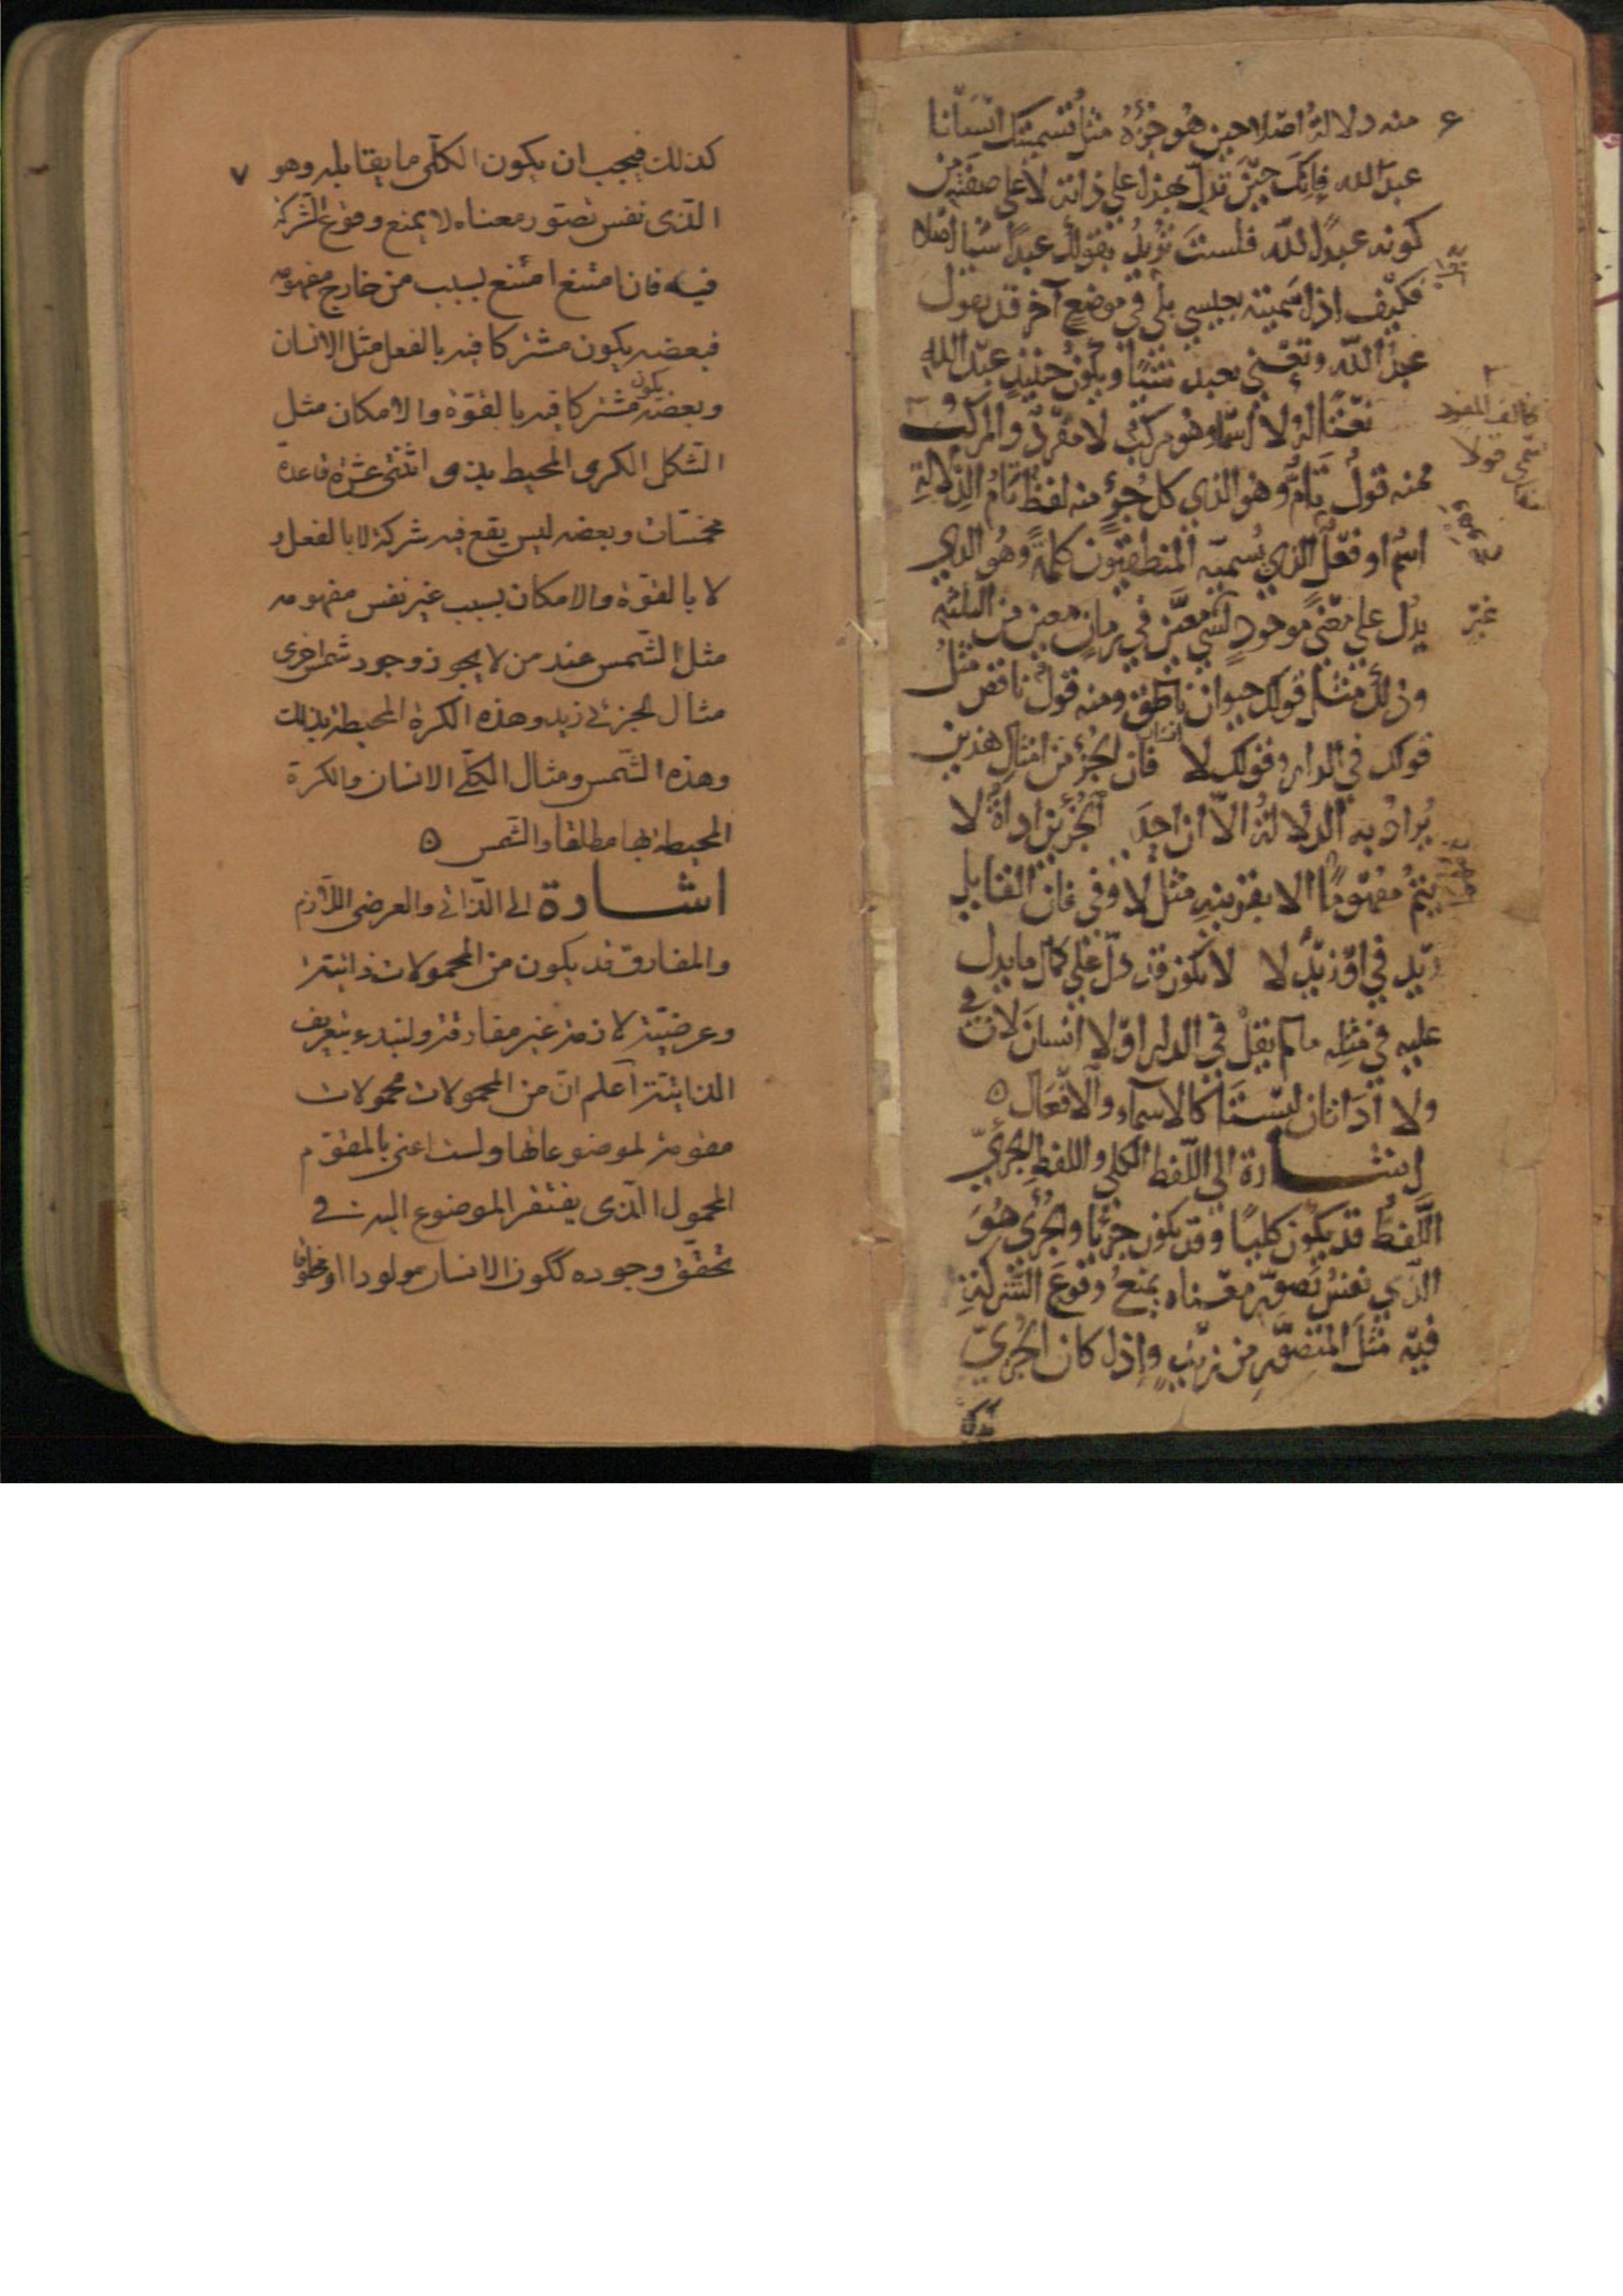 ٤
منه دلالة اصلا حين هو جزؤه مثل تسميتك انسانا
عبد الله فانك حين تدل بهذا على ذاته لا على صفته من
كونه عبدا لله فلست تريد بقولك عبدا شيا اصلا
فكيف اذا سميته بعيسى بلى فى موضع آخر قد تقول
عبد الله وتعنى بعبد شيئا ويكون حينئذ عبد الله
نعتا له لا اسما وهو مركب لا مفرد والمركب
فمنه قول تام وهو الذي كل جزء منه لفظ تام الدلالة
اسم او فعل الذي يسميه المنطقيون كلمة وهو الذي
يدل على معنى موجود لشي معين في زمان معين من الثلثه
وذلك مثل قولك حيوان ناطق ومنه قول ناقص مثل
قولك في الدار وقولك لا انسان فان الجزء من امثال هذين
يراد به الدلالة الا ان احد الجزئين اداة لا
يتم مفهومها الا بقرينه مثل لا وفي فان القايل
زيد في او زيد لا لا يكون قد دل على كمال ما يدل
عليه في مثله ما لم يقل في الدار او لا انسان لان في
ولا اداتان ليستا كالاسماء والافعال ه
اشارة الى اللفظ الكلي واللفظ الجزئي
اللفظ قد يكون كليا وقد يكون جزئيا والجزئي هو
الذي نفس تصور معناه يمنع وقوع الشركة
فيه مثل المتصور من زيد واذا كان الجزئي
كذلك
غير
٧
كذلك فيجب ان يكون الكلّى ما يقابله وهو
الّذى نفس تصّور معناه لا يمنع وقوع الشّركة
فيه فان امتنع امتنع لسبب من خارج مفهومه
فبعضه يكون مشتركا فيه بالفعل مثل الانسان
وبعضه يكون مشتركا فيه بالقوّة والامكان مثل
الشّكل الكرى المحيط بذى اثنتى عشرة قاعدة
مخمّسات وبعضه ليس يقع فيه شركة لا بالفعل و
لا بالقوّة والامكان لسبب غير نفس مفهومه
مثل الشّمس عند من لا يجوّز وجود شمس اخرى
مثال الجزئى زيد وهذه الكرة المحيطة بذلك
وهذه الشّمس ومثال الكلّى الانسان والكرة
المحيطة بها مطلقا والشّمس ه
اشارة الى الذّاتى والعرضى اللّازم
والمفارق قد يكون من المحمولات ذاتيّة
وعرضيّة لازمة غير مفارقة ولنبدء بتعريف
الذاتيّة اعلم انّ من المحمولات محمولات
مقومة لموضوعاتها ولست اعنى بالمقوّم
المحمول الّذى يفتقر الموضوع اليه فى
تحقّق وجوده ككون الانسان مولودا او مخلوقا